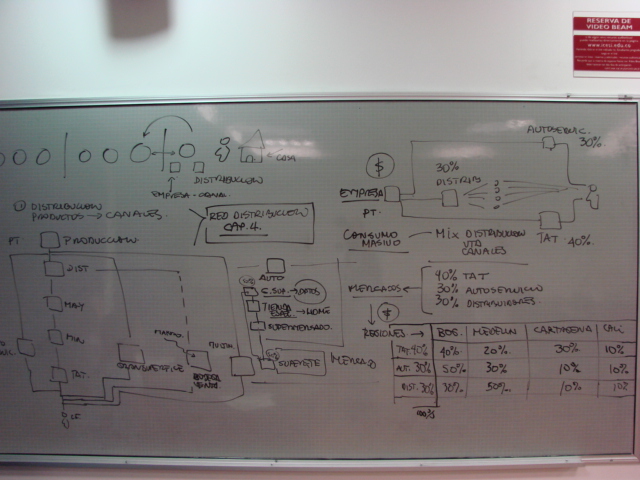 RESERVA DE
VIDEO BEAM
CASA
DISTRIBUCION
EMPRESA
① DISTRIBUCION
PRODUCTOS → CANALES.
RED DISTRIBUCION
CAP. 4.
PT. PRODUCCION
DIST
MAY
MIN
TAT.
AUTO
TIENDA
HOME
SUPERMERCADO
SUPERETE
MERCADO
AUTOSERVIC.
30%
$
30%
DISTRIB
EMPRESA
PT.
TAT. 40%
CONSUMO
MASIVO
MIX DISTRIBUCION
VTA
CANALES
MERCADOS
40% TAT
30% AUTOSERVICIO
30% DISTRIBUIDORES
$
REGIONES → BOG. MEDELLIN CARTAGENA CALI
TAT. 40% 40% 20% 30% 10%
AUT. 30% 50% 30% 10% 10%
DIST. 30% 30% 50% 10% 10%